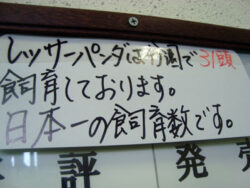 レッサーパンダは当園で31頭
飼育しております。
日本一の飼育数です。
評 発売